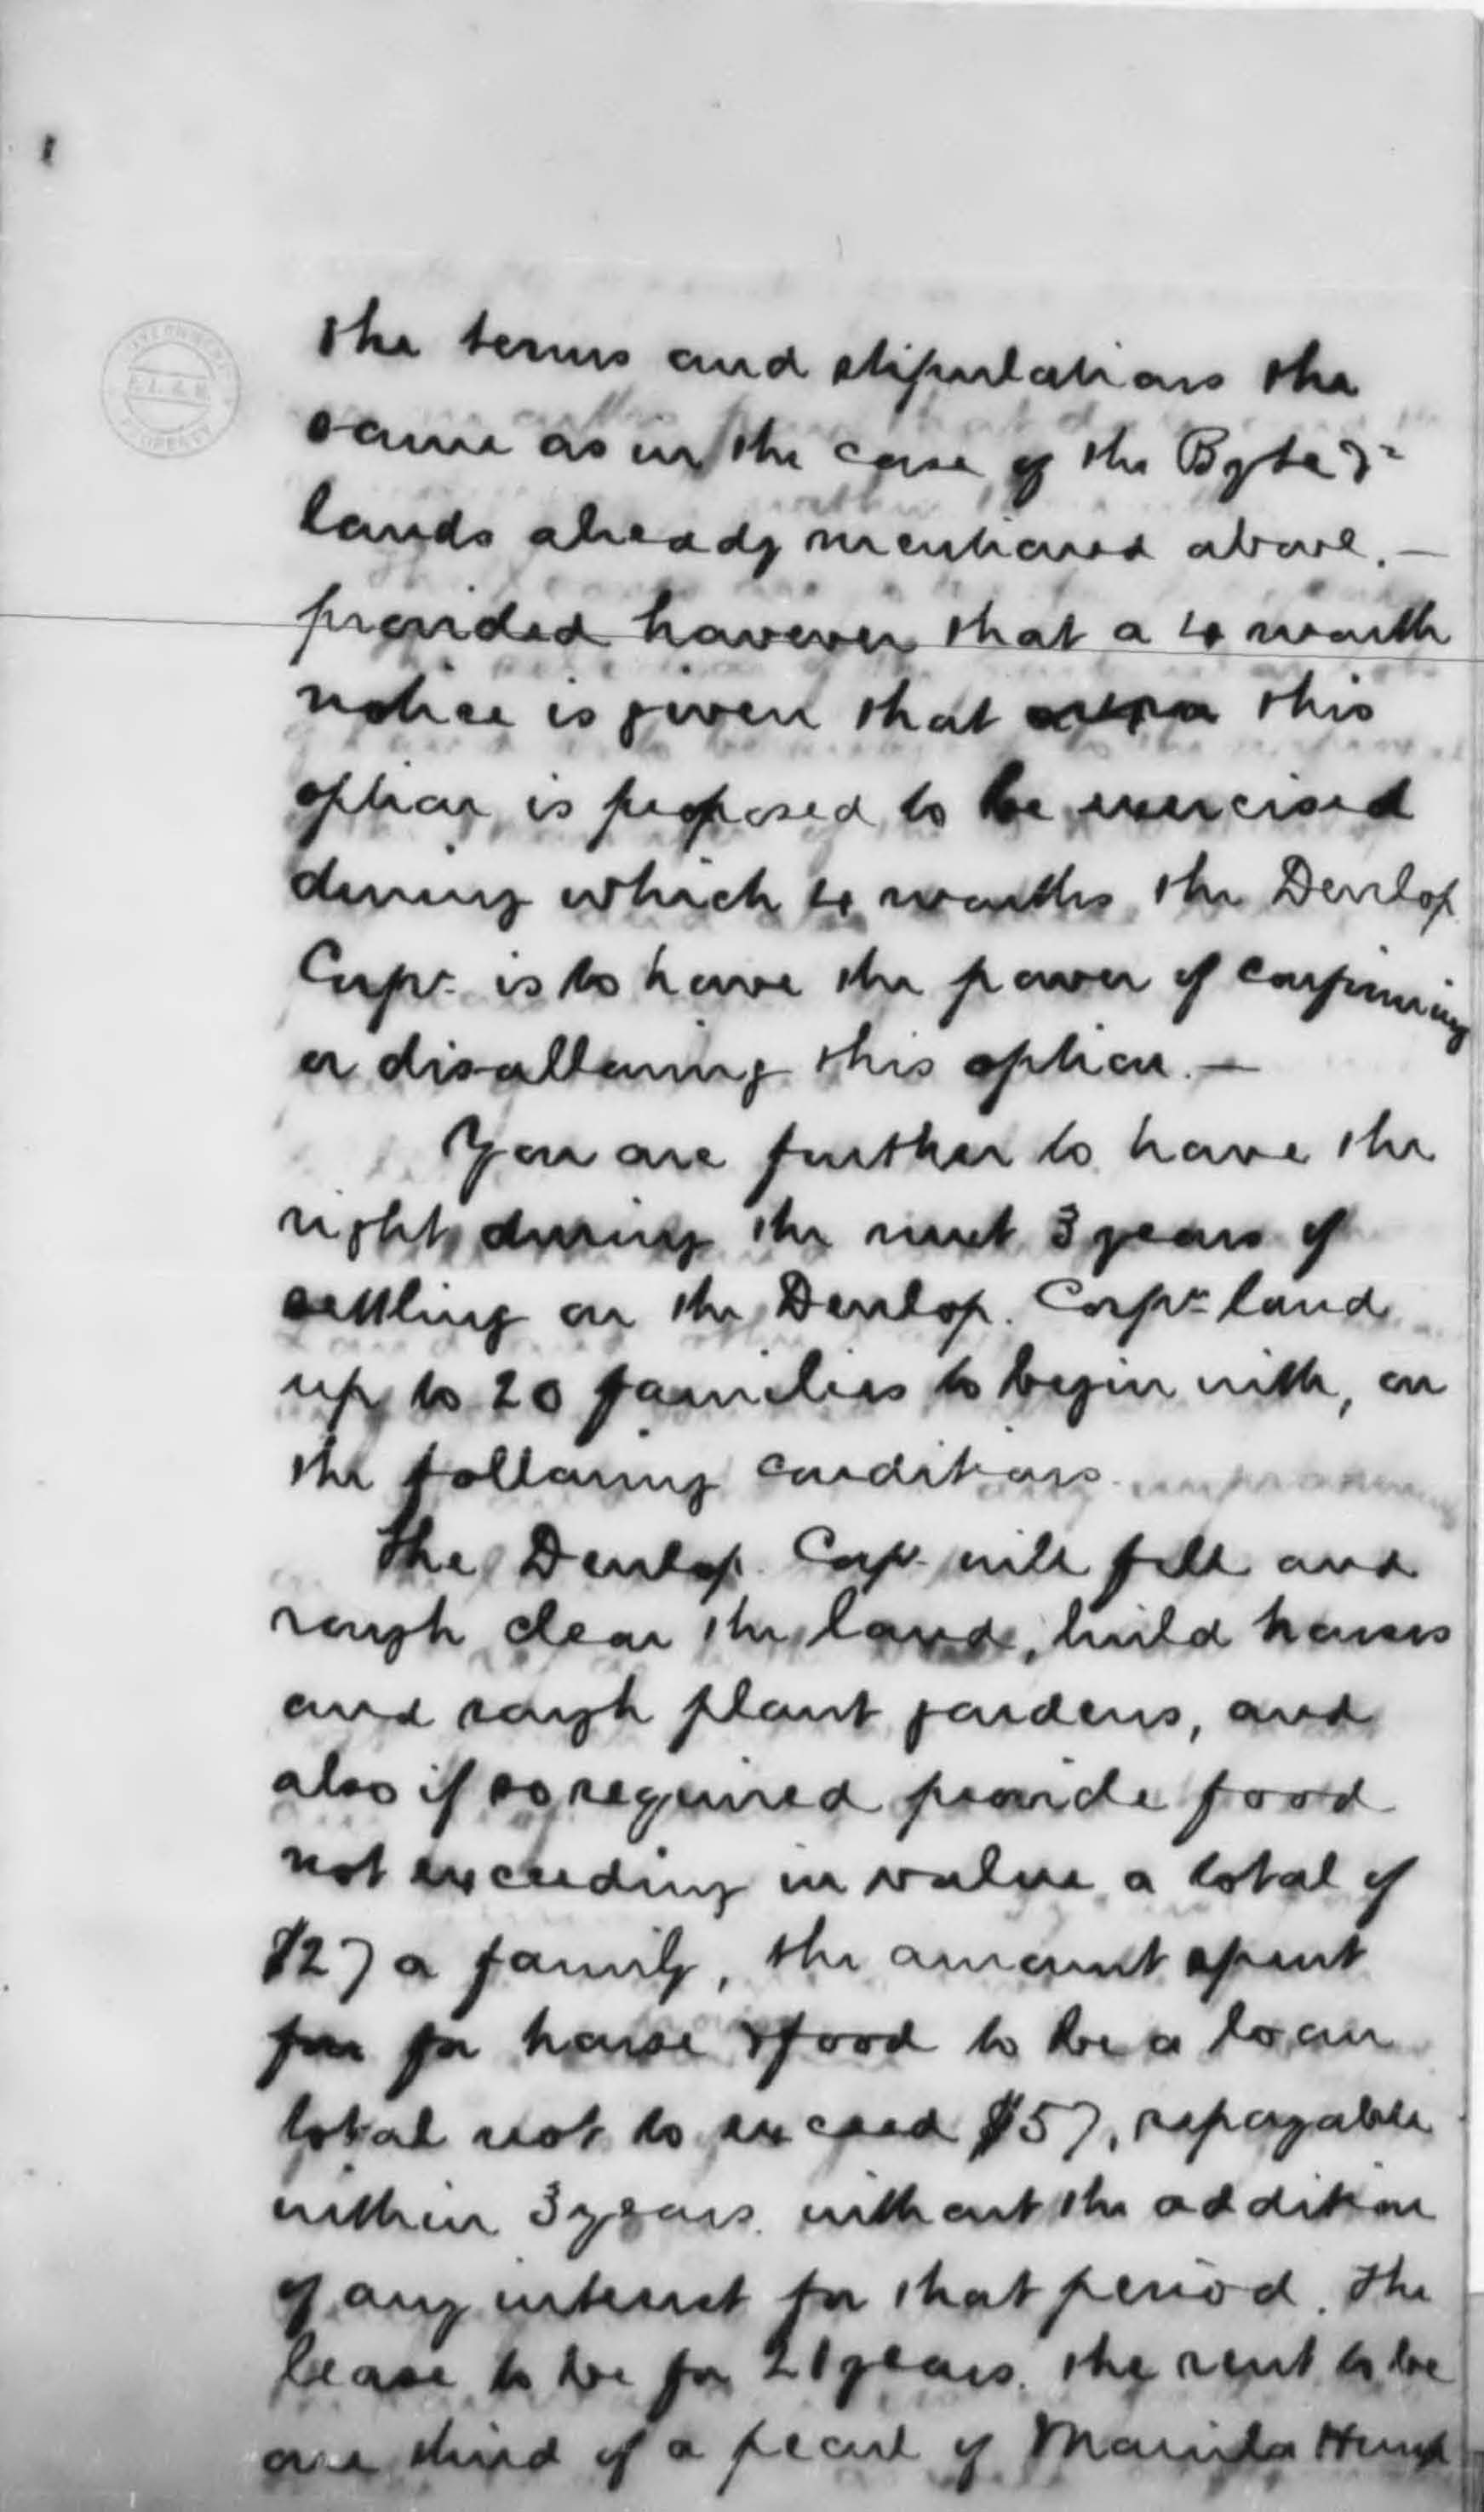 The terms and stipulations the
same as in the case of the
lands already mentioned above. —
provided however that a 4 month
notice is given that this
option is proposed to be exercised
during which 4 months the Devlop.
Corpn. is to have the power of confirming
or disallowing this option. —
You are further to have the
right during the next 3 years of
settling on the Devlop. Corpn. land
up to 20 families to begin with, on
the following conditions.
The Devlop. Corpn. will fell and
rough clear the land, build houses
and rough plant gardens, and
also if so required provide food
not exceeding in value a total of
$27 a family, the amount spent
for house & food to be a loan
total not to exceed $57, repayable
within 3 years without the addition
of any interest for that period. The
lease to be for 21 years. The rent to be
one third of a picul of Manila Hemp